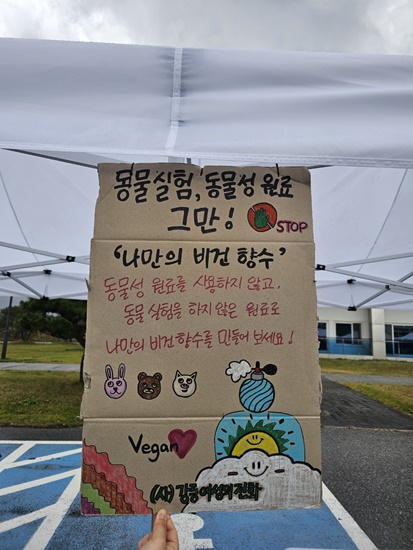 동물실험, 동물성 원료
그만! STOP
'나만의 비건 향수'
동물성 원료를 사용하지 않고,
동물 실험을 하지 않은 원료로
나만의 비건향수를 만들어 보세요!
Vegan
(사)강릉여성의전화